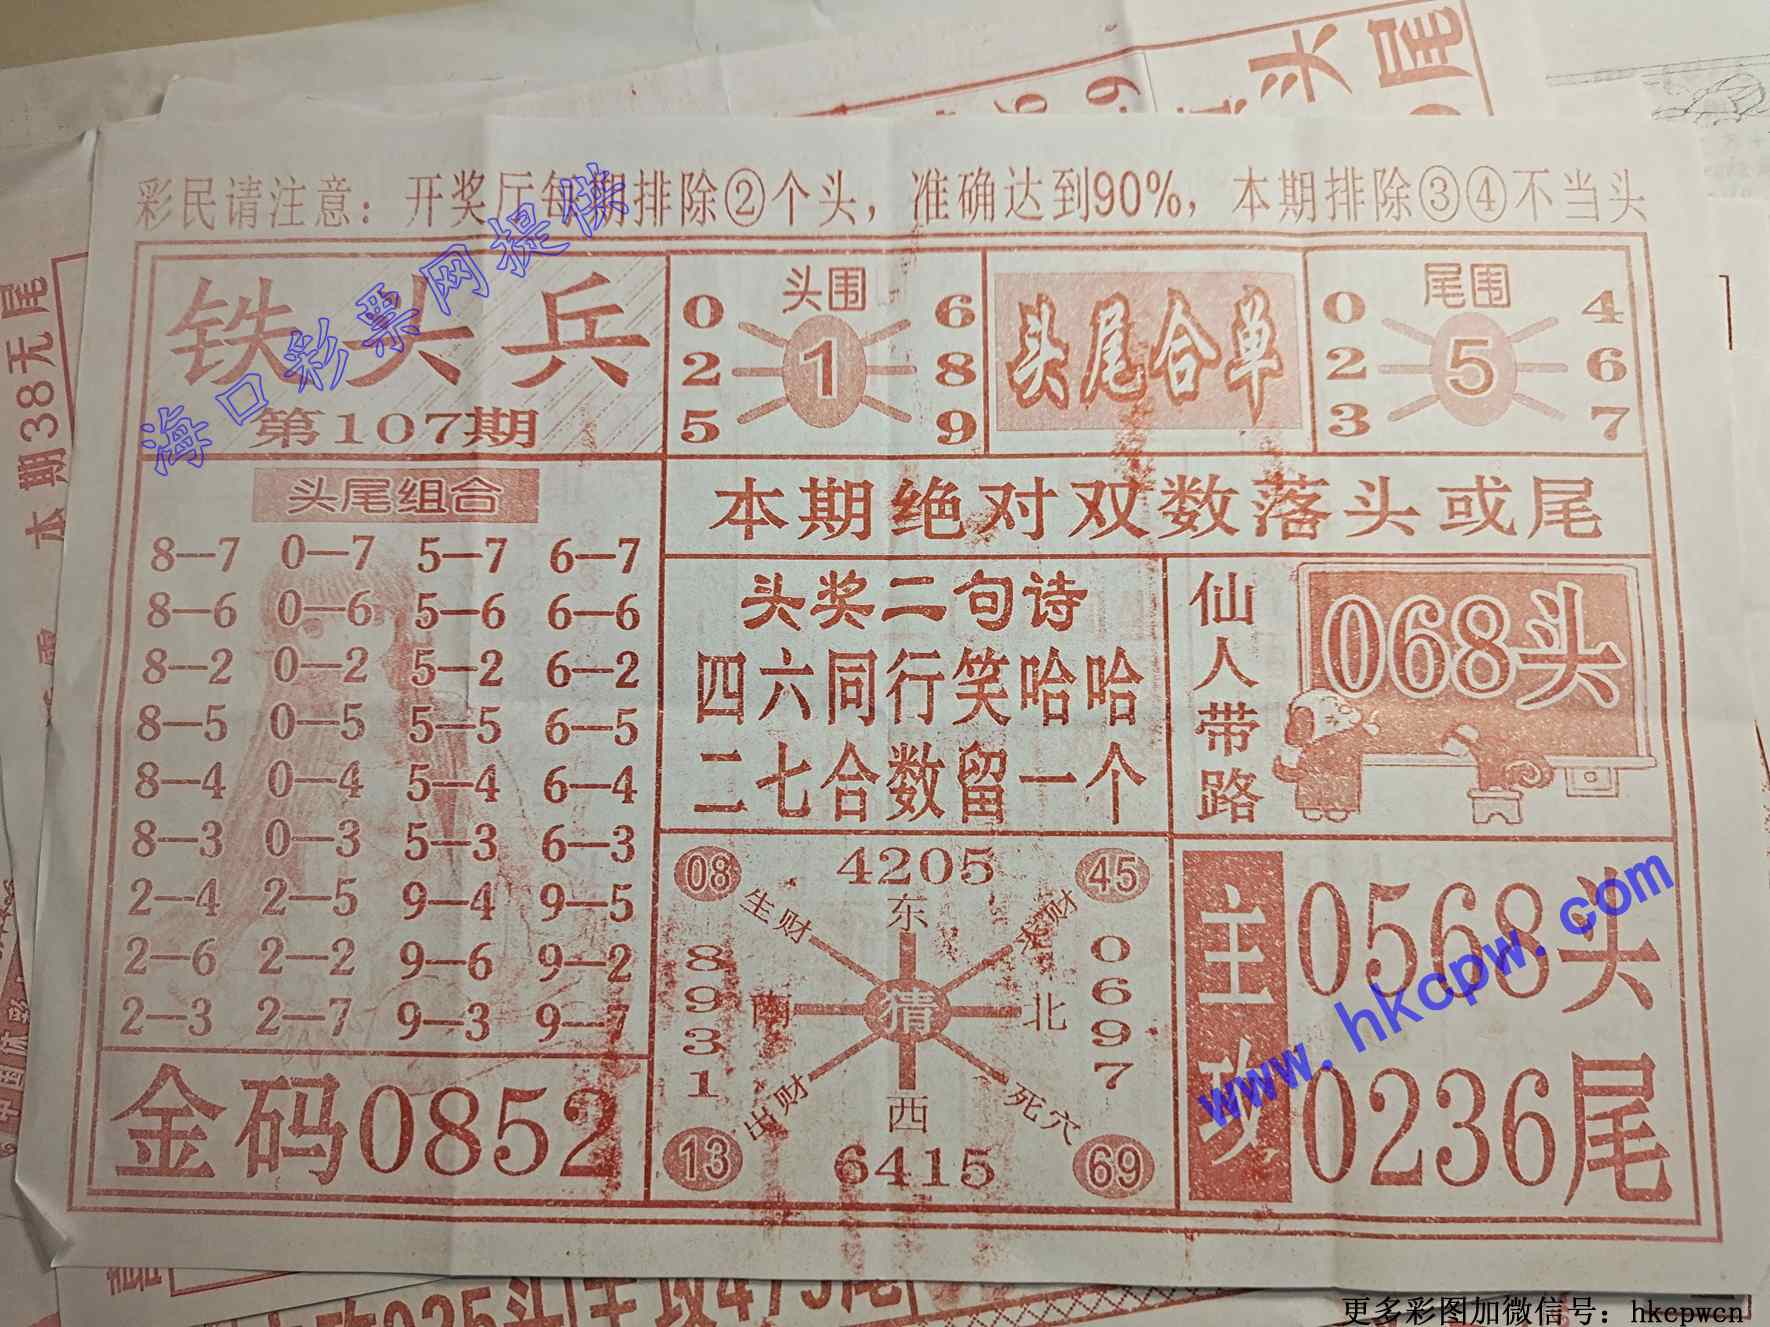 彩民请注意：开奖厅每期排除②个头，准确达到90%，本期排除③④不当头
铁头兵
第107期
头围
0 6
2 1 8
5 9
头尾合单
尾围
0 4
2 5 6
3 7
头尾组合
8—7 0—7 5—7 6—7
8—6 0—6 5—6 6—6
8—2 0—2 5—2 6—2
8—5 0—5 5—5 6—5
8—4 0—4 5—4 6—4
8—3 0—3 5—3 6—3
2—4 2—5 9—4 9—5
2—6 2—2 9—6 9—2
2—3 2—7 9—3 9—7
金码0852
本期绝对双数落头或尾
头奖二句诗
四六同行笑哈哈
二七合数留一个
仙人带路
068头
08 4205 45
生财 东
8931 南 猜 北 0697
出财 西 死穴
13 6415 69
主攻
0568头
0236尾
海口彩票网提供
www.hkcpw.com
更多彩图加微信号：hkcpwcn
本期38无尾
头
尾